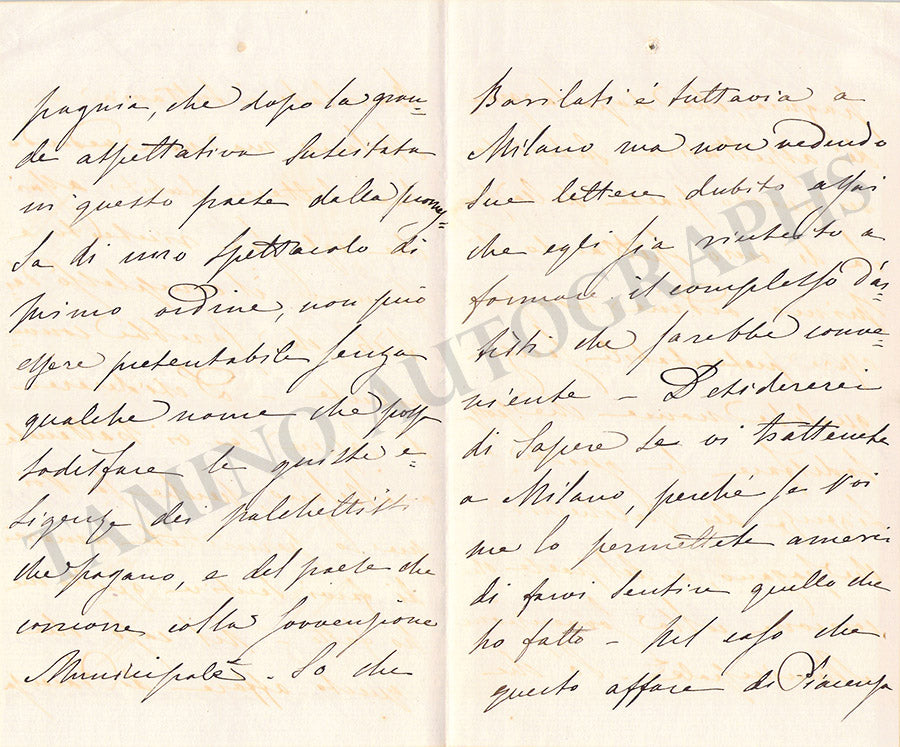 pagnia, che dopo la gran=
de aspettativa suscitata
in questo paese dalla promes=
sa di uno spettacolo di
primo ordine, non può
essere presentabile senza
qualche nome che poss
sodisfare le giuste e=
sigenze dei palchettisti
che pagano, e del paese che
concorre colla sovvenzione
Municipale. So che
Barilati é tuttavia a
Milano ma non vedendo
sue lettere dubito assai
che egli sia riuscito a
formare il complesso d'ar=
tisti che sarebbe conve=
niente – Desidererei
di sapere se vi tratterrete
a Milano, perché se Voi
me lo permettete amerei
di farvi sentire quello che
ho fatto – Nel caso che
questo affare di Piacenza
TAMINO AUTOGRAPHS